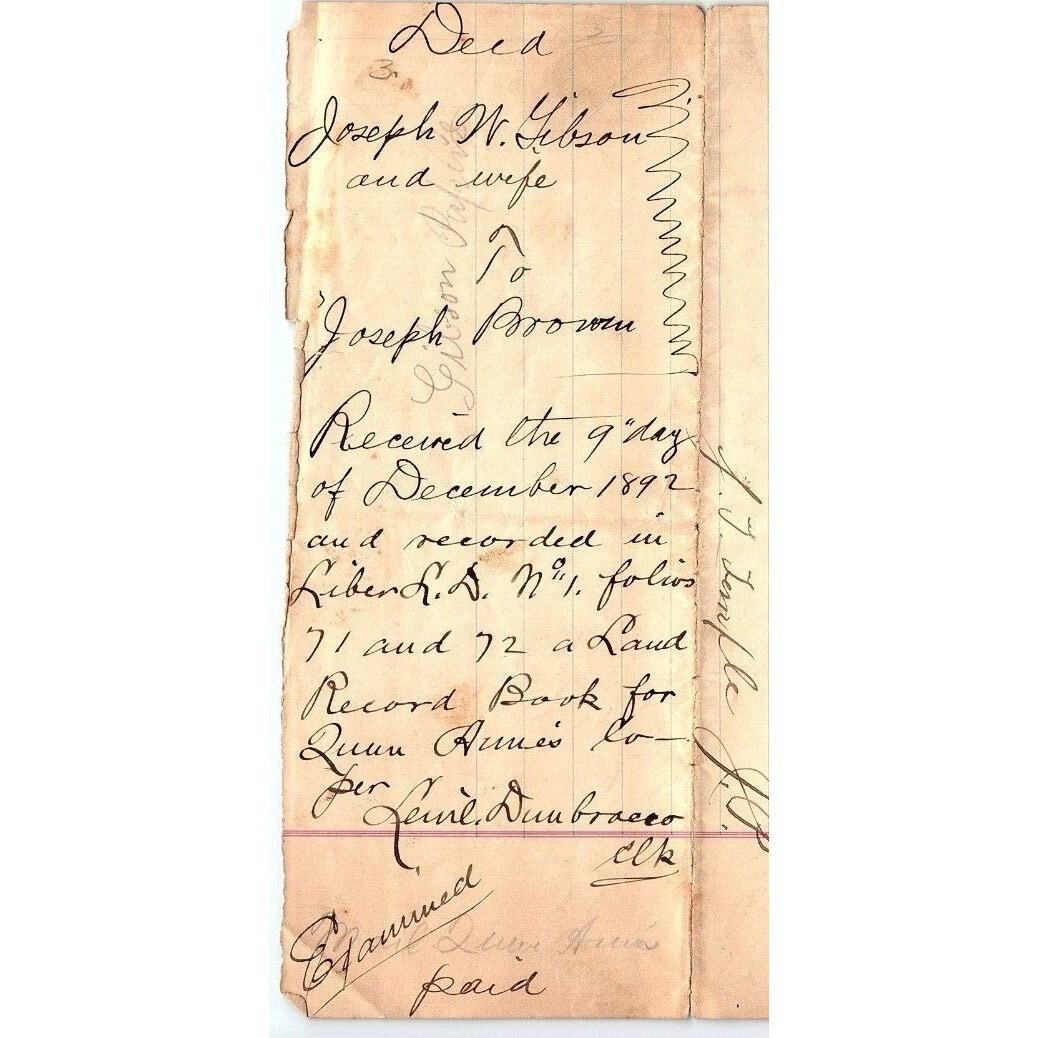 Deed
3
Joseph W. Gibson
and wife
To
Joseph Brown
Gibson Papers
Received the 9" day
of December 1892
and recorded in
Liber L. D. No 1. folios
71 and 72 a Land
Record Book for
Queen Anne's Co—
per
Lewil. Dunbracco
Clk
Examined
Queen Anne's
paid
J. T. Temple J. P.